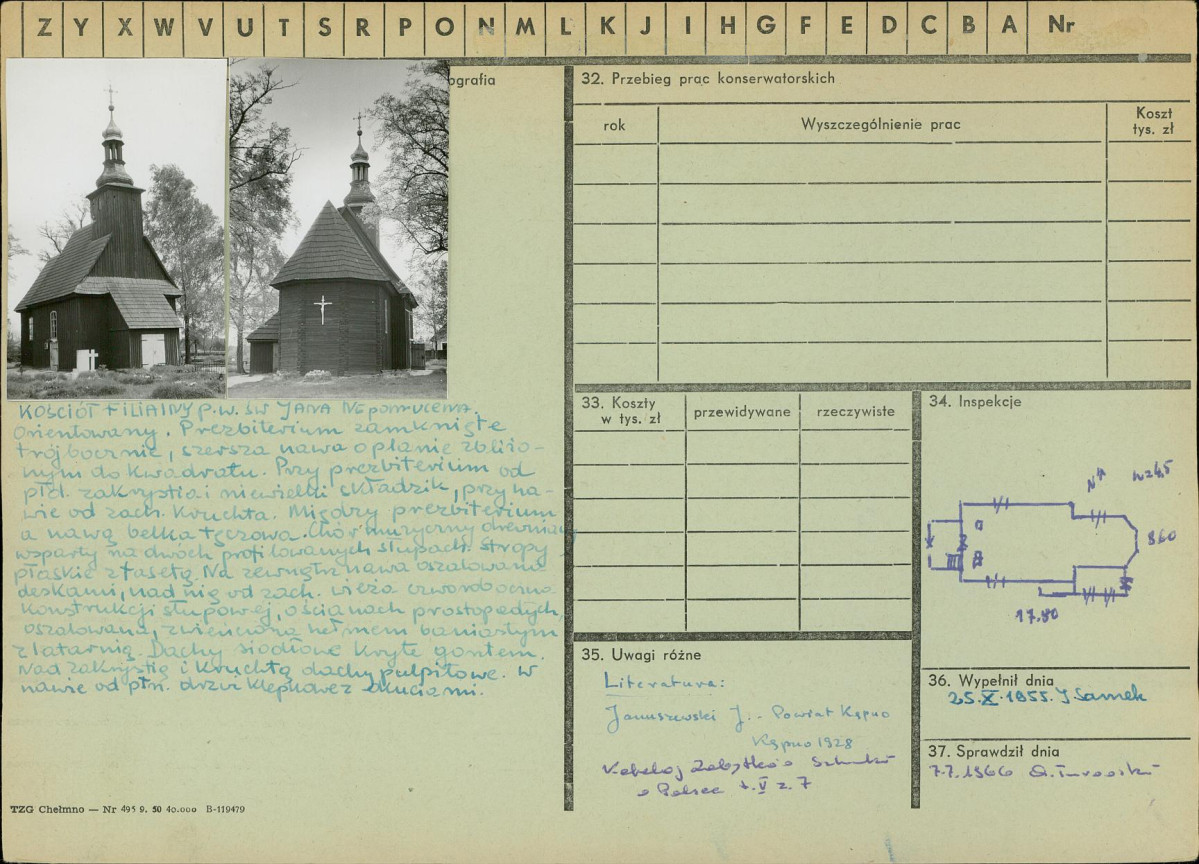 Z Y X W V U T S R P O N M L K J I H G F E D C B A Nr
ografia
KOŚCIÓŁ FILIALNY P.W. ŚW JANA NEPOMUCENA.
Orientowany. Prezbiterium zamknięte
trójbocznie, szersza nawa o planie zbliżo-
nym do kwadratu. Przy prezbiterium od
płd. zakrystia i niewielki składzik, przy na-
wie od zach. kruchta. Między prezbiterium
a nawą belka tęczowa. Chór muzyczny drewniany
wsparty na dwóch profilowanych słupach. Stropy
płaskie z fasetą. Na zewnątrz nawa oszalowana
deskami, nad nią od zach. wieża czworoboczna
konstrukcji słupowej, o ścianach prostopadłych,
oszalowana, zwieńczona hełmem baniastym
z latarnią. Dachy siodłowe kryte gontem.
Nad zakrystią i kruchtą dachy pulpitowe. W
nawie od płn. drzwi klepkowe z okuciami.
TZG Chełmno — Nr 495 9. 50 40.000 B-119479
32. Przebieg prac konserwatorskich
rok
Wyszczególnienie prac
Koszt
tys. zł
33. Koszty
w tys. zł
przewidywane
rzeczywiste
34. Inspekcje
N
860
17.80
35. Uwagi różne
Literatura:
Januszewski J. - Powiat Kępno
Kępno 1928
Katalog Zabytków Sztuki
w Polsce t. V z. 7
36. Wypełnił dnia
25.X.1955. J Samek
37. Sprawdził dnia
7.7.1966